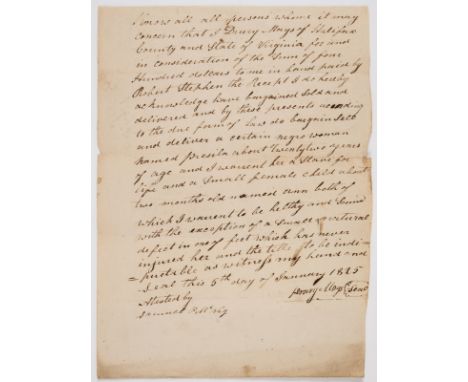 Know all all persons whome it may
concern that I Drury Mays of Halifax
County and State of Virginia for and
in consideration of the Sum of four
Hundred dollars to me in hand paid by
Robert Stephen the Recept I do hereby
acknowledge have bargained Sold and
delivered and by these presents according
to the due form of Law do bargain Sell
and deliver a certain negro woman
named Presila about Twentytwo years
of age and I warent her a Slave for
life and a Small female child about
two months old named ann both of
which I warent to be helthy and Sound
with the exception of a Small natural
defect in one of feet which has never
injured her and the title to be indi=
=sputable as witness my hand and
Seal this 5th day of January 1825
Attested by
Drury Mays Seal
Samuel